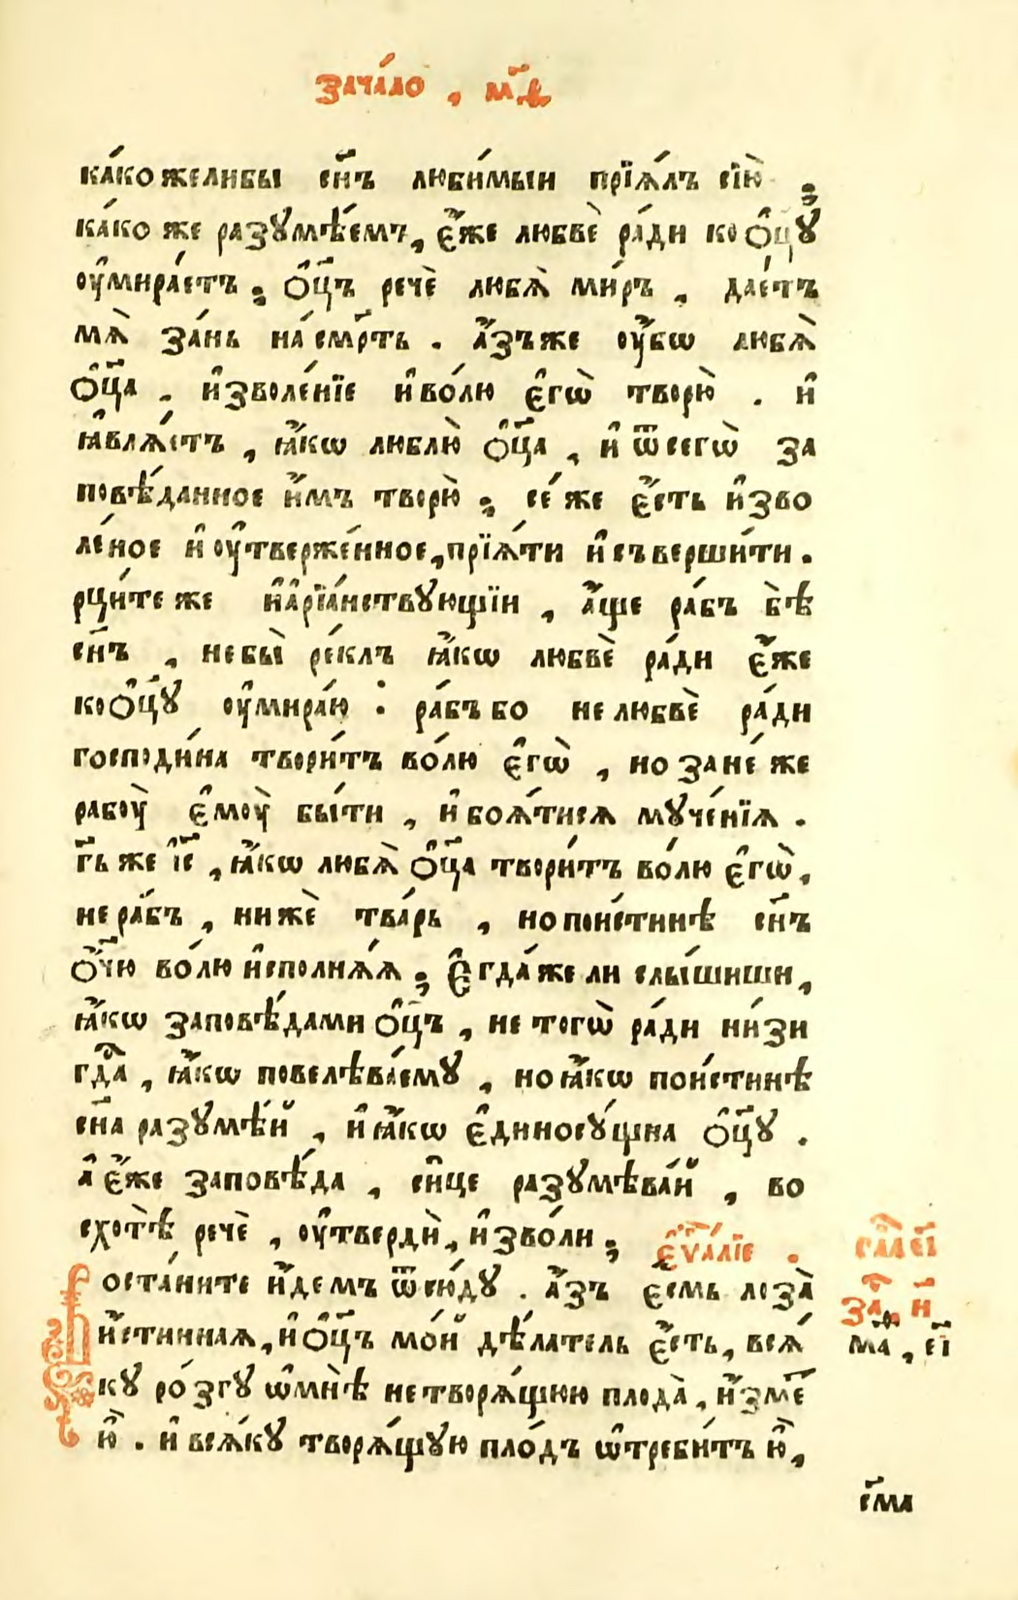 зача́ло , м҃ѳ
ка́ко желибы сн҃ъ люби́мыи прїѧ́лъ сїю̀ ;
ка́ко же разꙋмѣ́емъ , є҆́же любвѐ ра́ди ко ѻ҆ц҃ꙋ
ѹ҆мира́етъ ; ѻ҆ц҃ъ речѐ любѧ̀ ми́ръ , дае́тъ
мѧ̀ за́нь на́ сме́рть . а҆́зъже ѹ҆́бѡ любѧ̀
ѻ҆ц҃а . и҆зволе́нїе и҆ во́лю є҆гѡ̀ творю̀ . и҆
ꙗ҆влѧ́етъ , ꙗ҆́кѡ люблю̀ ѻ҆ц҃а , и҆ ѿ сегѡ̀ за
повѣ́данное и҆́мъ творю̀ ; се́ же є҆́сть и҆зво
ле́ное и҆ ѹ҆твержде́нное , прїѧ́ти и҆ съверши́ти .
рцы́те же и҆ а҆рїа́нствꙋющїи , а҆́ще ра́бъ бѣ̀
сн҃ъ , небы̀ ре́клъ ꙗ҆́кѡ любвѐ ра́ди є҆́же
ко ѻ҆ц҃ꙋ ѹ҆мира́ю : ра́бъ бо не любвѐ ра́ди
господи́на твори́тъ во́лю є҆гѡ̀ , но зане́ же
рабѹ̀ є҆мѹ̀ бы́ти , и҆ боѧ́тисѧ мꙋче́нїѧ .
гь҃ же і҆с҃ , ꙗ҆́кѡ любѧ̀ ѻ҆ц҃а твори́тъ во́лю є҆гѡ̀ ,
не ра́бъ , нижѐ тва́рь , но пои́стинѣ сн҃ъ
ѻ҆́ч҃ю во́лю и҆сполнѧ́ѧ ; Є҆гда́ же ли слы́шиши ,
ꙗ҆́кѡ заповѣ́дами ѻ҆ц҃ъ , не тогѡ̀ ра́ди ни́зи
гдⷭ҇а , ꙗ҆́кѡ повелѣва́емꙋ , но ꙗ҆́кѡ пои́стинѣ
сн҃а разꙋмѣ́й , и҆ ꙗ҆́кѡ є҆диносꙋ́щна ѻ҆ц҃ꙋ .
а҆ є҆́же заповѣ́да , си́це разꙋмѣва́й , во
схотѣ̀ речѐ , ѹ҆твердѝ , и҆зво́ли ; є҆ѵⷢ҇а́лїе .
гла҃ еі҃
Воста́ните и҆́демъ ѿсю́дꙋ . а҆́зъ є҆смь лоза̀
за҃ , н҃
и҆́стиннаѧ , и҆ ѻ҆ц҃ъ мо́й дѣ́латель є҆́сть , всѧ́
ма , еі҃
кꙋ ро́згꙋ ѡ҆ мнѣ̀ нетворѧ́щюю плода̀ , и҆́змеⷮ
ю҆̀ . и҆ всѧ́кꙋ творѧ́щꙋю пло́дъ ѡ҆треби́тъ ю҆̀ ,
см҃а